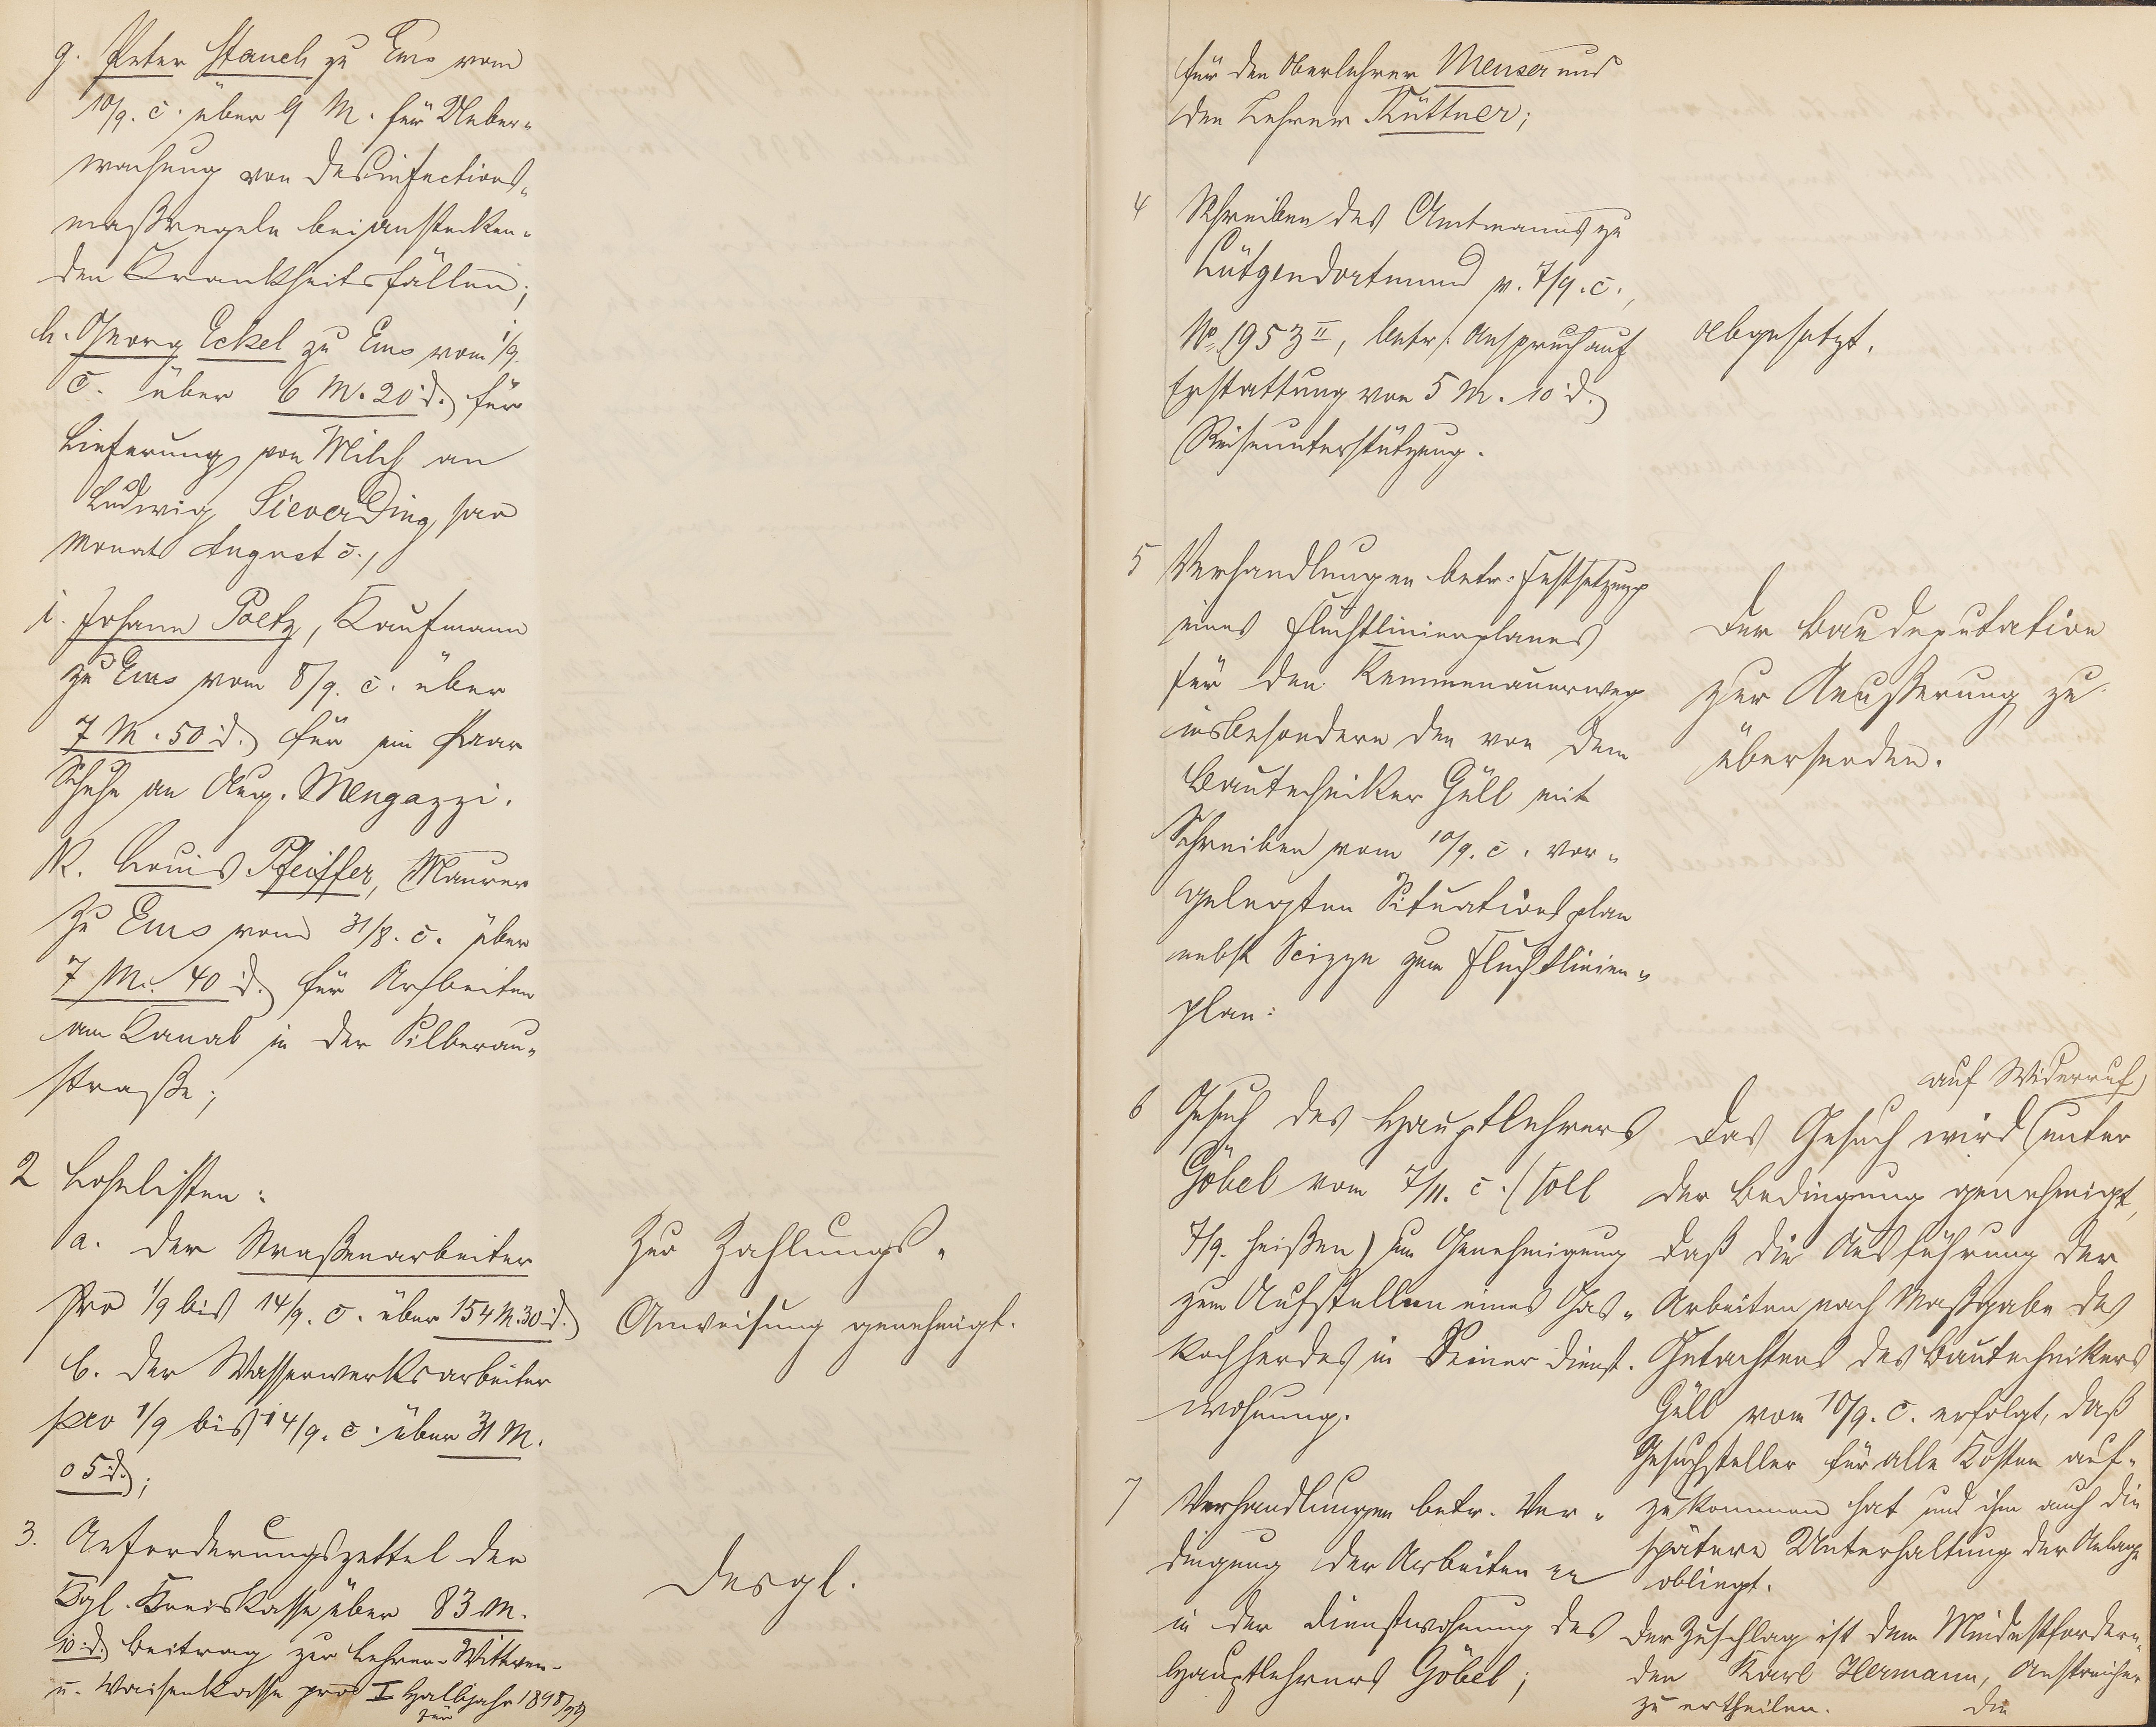 g. Peter Stauch zu Ems vom
10/9. c. über 9 M. für Ueber-
wachung von Desinfections-
maßregeln bei anstecken-
den Krankheitsfällen;
h. Georg Eckel zu Ems vom 1/9.
c. über 6 M. 20 d. für
Lieferung von Milch an
Ludwig Sieverding pro
Monat August c.,
i. Johann Poetz, Kaufmann
zu Ems vom 8/9. c. über
7 M. 50 d. für ein Paar
Schuhe an Aug. Mengazzi.
k. Louis Pfeiffer, Maurer
zu Ems vom 31/8. c. über
7 M. 40 d. für Arbeiten
am Kanal in der Silberau-
straße;
2 Lohnlisten:
a. der Straßenarbeiter
pro 1/9 bis 14/9. c. über 154 M. 30 d.
b. der Wasserwerksarbeiter
pro 1/9 bis 14/9. c. über 31 M.
05 d.;
Zur Zahlungs-
Anweisung genehmigt.
3. Anforderungszettel der
Kgl. Kreiskasse über 83 M.
10 d. Beitrag zur Lehrer-Wittwen-
u. Waisenkasse pro I Halbjahr 1898/99
für
desgl.
für den Oberlehrer Menser und
den Lehrer Küttner;
4 Schreiben des Amtmanns zu
Lütgendortmund v. 7/9. c.,
No. 1953 II, betr. Anspruch auf
Erstattung von 5 M. 10 d.
Reiseunterstützung.
abgesetzt.
5 Verhandlungen betr. Festsetzung
eines Fluchtlinienplanes
für den Kemmenauerweg
insbesondere den von dem
Bautechniker Güll mit
Schreiben vom 10/9. c. vor-
gelegten Situationsplan
nebst Scizze zum Fluchtlinien-
plan:
Der Baudeputation
zur Aeußerung zu
übersenden.
6 Gesuch des Hauptlehrers
Göbel vom 7/11. c. (soll
7/9. heißen) um Genehmigung
zum Aufstellen eines Gas-
kochherdes in Seiner Dienst-
wohnung.
auf Widerruf
Das Gesuch wird (unter
der Bedingung genehmigt,
daß die Ausführung der
Arbeiten nach Maßgabe des
Gutachtens des Bautechnikers
Güll vom 10/9. c. erfolgt, daß
Gesuchsteller für alle Kosten auf-
zukommen hat und ihm auch die
spätere Unterhaltung der Anlage
obliegt.
7 Verhandlungen betr. Ver-
dingung der Arbeiten
in der Dienstwohnung des
Hauptlehrers Göbel;
Der Zuschlag ist dem Mindestfordern-
den Karl Hermann, Anstreicher
zu ertheilen.
Die